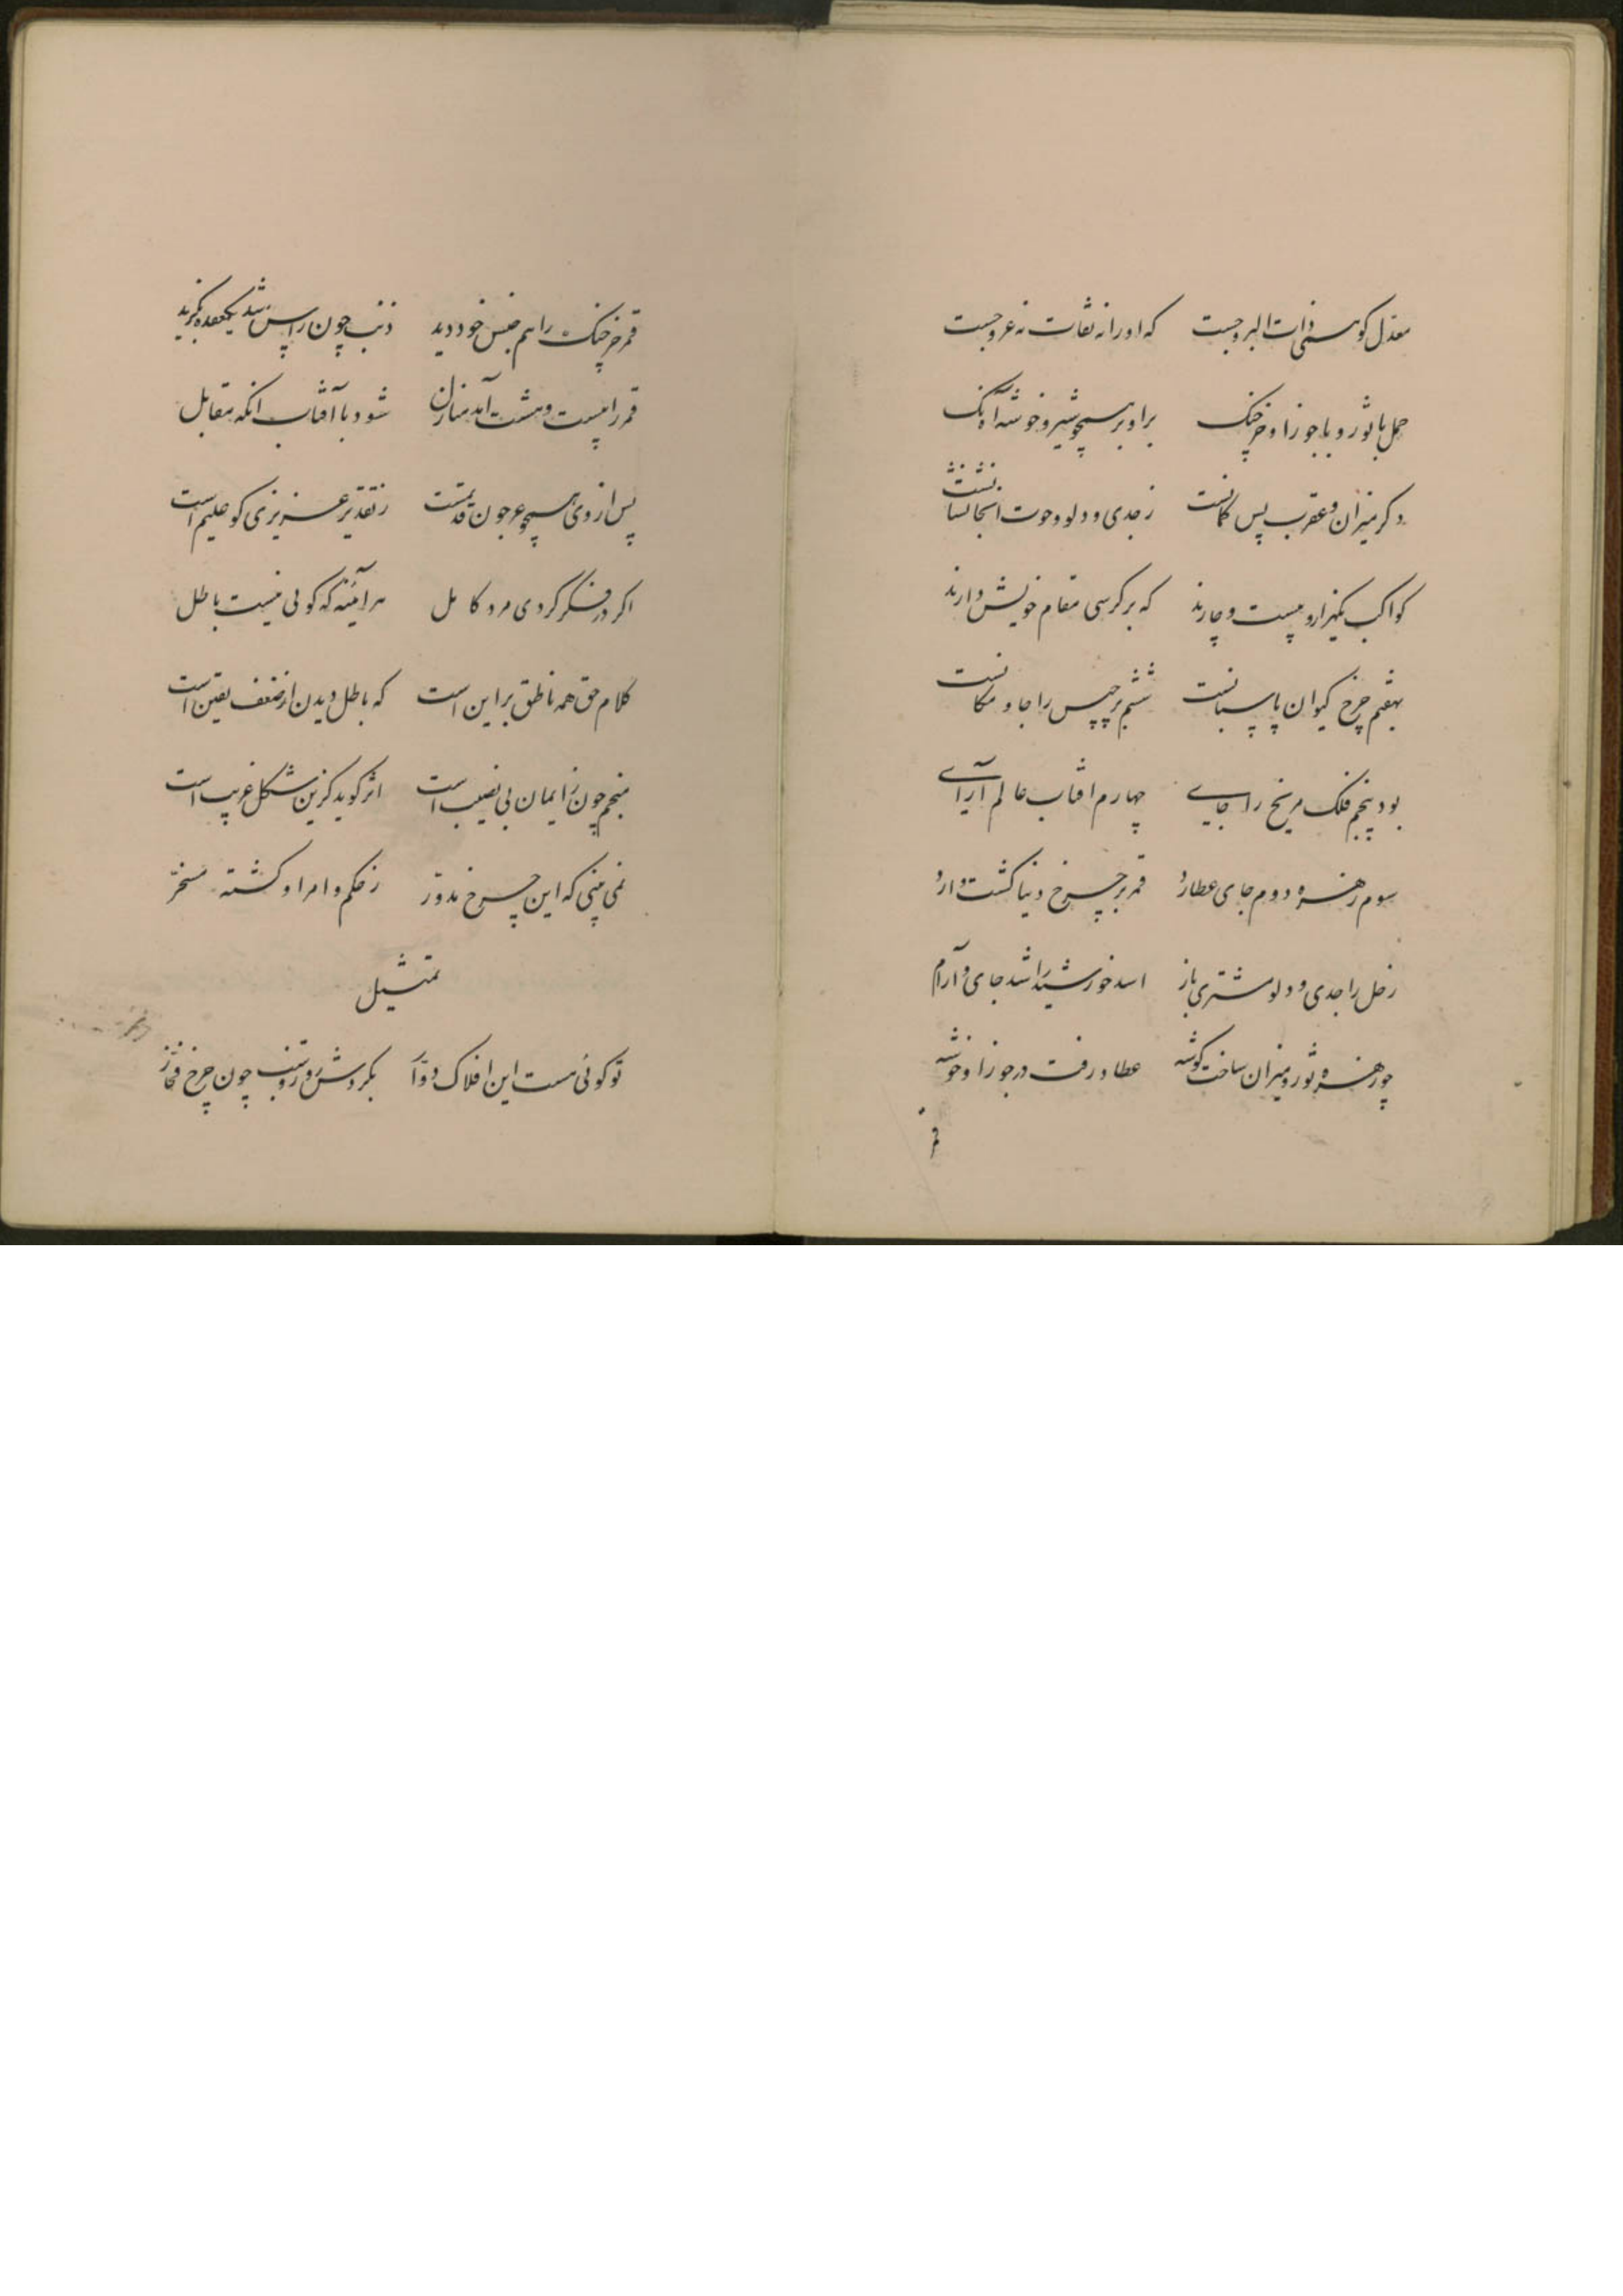 معدل کرسی ذات البروجست که او را نه تفاوت نه فروجست
حمل با ثور و با جوزا و خرچنگ برا و بر همچو شیر و خوشه آونک
دکر میزان و عقرب پس کمانست ز جدی و دلو و حوت انجا نشانست
کواکب یکهزار و بیست و چارند که بر کرسی مقام خویش دارند
بهفتم چرخ کیوان پاسبانست ششم برجیس را جا و مکانست
بود پنجم فلک مریخ را جای چهارم افتاب عالم آرای
سوم زهره دوم جای عطارد قمر بر چرخ دنیا کشت وارد
زحل را جدی و دلو مشتری باز اسد خورشید را شد جای و آرام
چو زهره ثور و میزان ساخت کوشه عطارد رفت در جوزا و خوشه
قمر
قمر خرچنک را هم جنس خود دید ذنب چون راس شد یک عقده بگزید
قمر را بیست و هشت آمد منازل شود با آفتاب انکه مقابل
پس از وی همچو عرجون قدیمست ز تقدیر عزیزی کو علیم است
اکر در فکر کردی مرد کامل هر آئینه که کوئی نیست باطل
کلام حق همه ناطق بر این است که باطل دیدن از ضعف یقین است
منجم چون ز ایمان بی نصیب است اثر کوید کزین شکل غریب است
نمی بینی که این چرخ مدور ز حکم و امر او کشته مسخر
تمثیل
تو کوئی هست این افلاک دوار بکردش روز و شب چون چرخ فخار